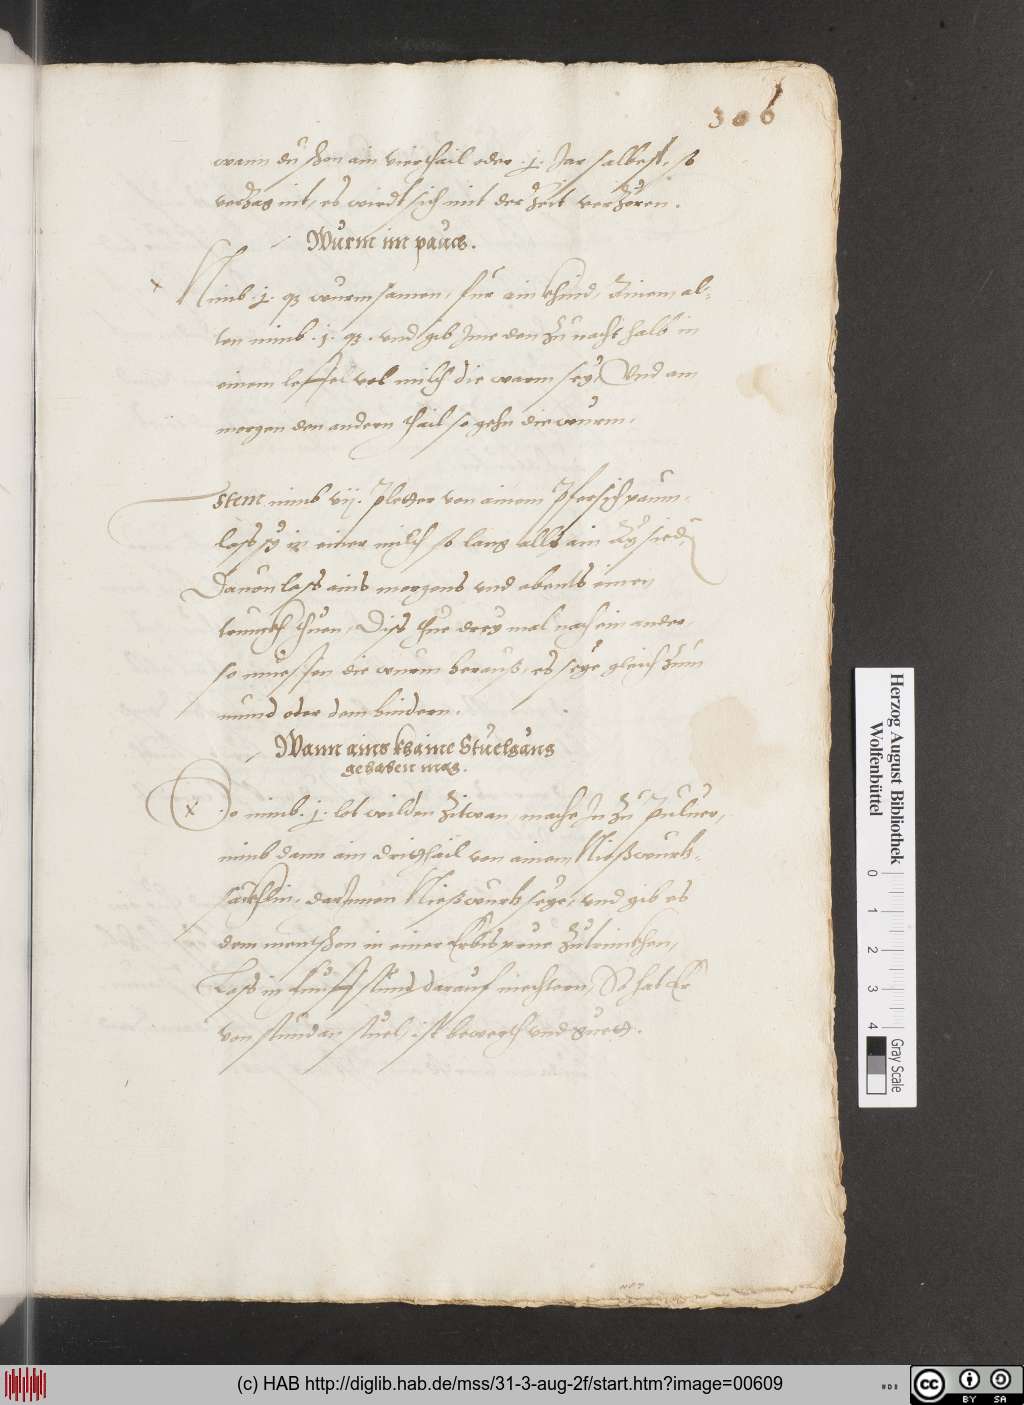 306
wann du schon ain vierthail oder .j. Jar salbest, so
verzag nit, es wirdt sich mit der Zeit verzören.
Wurm im pauch.
x Nimb .j. qz wurmsamen, für ain khind, Einem al-
ten nimb .j. qz. und gib Jme den zu nacht halb in
einem leffel vol milch die warm sey, Und am
morgen den andern thail so gehn die würm.
Item nimb vij. Pletter von einem Pfersichpaum,
lass sy in einer milch so lang alls ain Ay sieden
Davon lass ains morgens und abents einen
trunckh thuen, Diss thue drey mal nach ein ander,
so muessen die wurm herauß, es seye gleich zum
mund oder dem hindern.
Wann ains khaine Stuelgäng
gehaben mag.
x So nimb .j. lot wilden Zitwan, mache Jn zu Pulver,
nimb dann ain dritthail von ainem Nießwurtz-
säckhlin, darJnnen Nießwurtz seye, und gib es
dem menschen in einer Erbisprue zutrinckhen,
Lass in funff stund darauf niechtern, So hat Er
von stund an stuel, ist bewerth und guett.
Herzog August Bibliothek
Wolfenbüttel
0 1 2 3 4
Gray Scale
(c) HAB http://diglib.hab.de/mss/31-3-aug-2f/start.htm?image=00609
cc BY SA